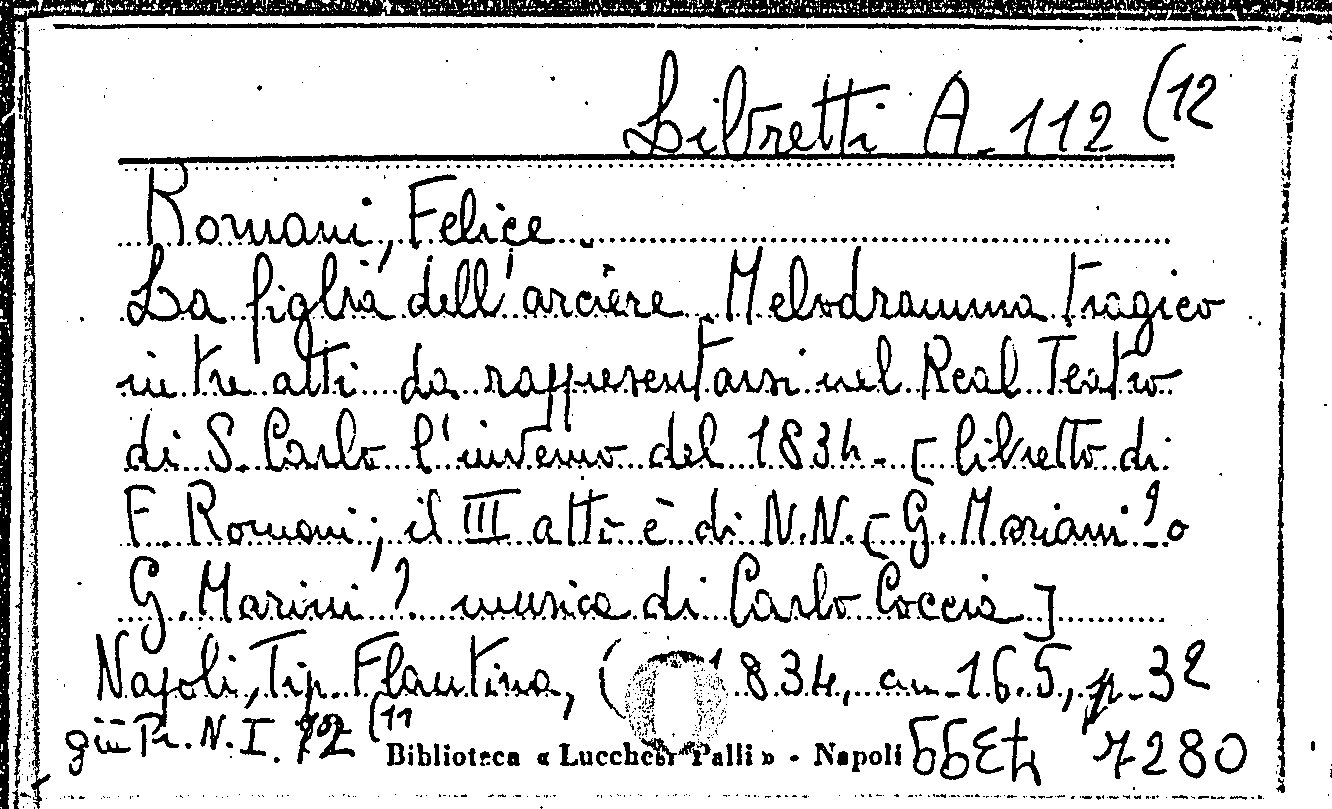 Libretti A. 112 (12
Romani, Felice.
La figlia dell'arciere. Melodramma tragico
in tre atti da rappresentarsi nel Real Teatro
di S. Carlo l'inverno del 1834. [libretto di
F. Romani; il III atto è di N.N. [G. Mariani? o
G. Marini? musica di Carlo Coccia]
Napoli, Tip. Flautina, ( 1834, cm. 16.5, p. 32
già Pr. N. I. (11
Biblioteca « Lucchesi Palli » - Napoli 7280